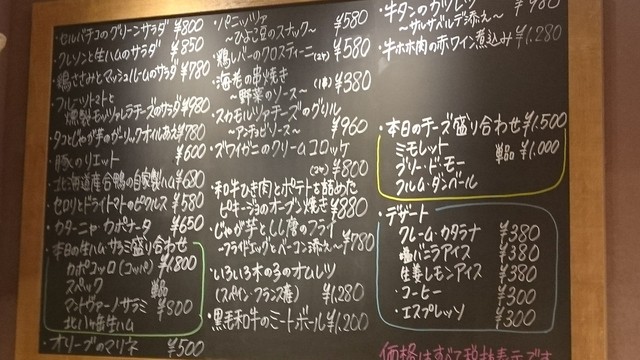 ・セルバチコのグリーンサラダ ¥800
・クレソンと生ハムのサラダ ¥850
・鶏ささみとマッシュルームのサラダ ¥780
・フルーツトマトと
燻製モッツァレラチーズのサラダ ¥980
・タコとじゃが芋のガーリックオイルあえ ¥780
・豚のリエット ¥600
・北海道産合鴨の自家製ハム ¥680
・セロリとドライトマトのピクルス ¥580
・カターニャ・カポナータ ¥650
・本日の生ハム・サラミ盛り合わせ
カポコッロ(コッパ) ¥1,800
スペック 単品
マントヴァーノサラミ ¥800
・オリーブのマリネ ¥500
・パニッツァ
〜ひよこ豆のスナック〜 ¥580
・鶏レバーのクロスティーニ(2ケ) ¥580
・海老の串焼き (1本) ¥380
〜野菜のソース〜
・スカモルツァチーズのグリル
〜アンチョビソース〜 ¥960
・ズワイガニのクリームコロッケ
(2ケ) ¥800
・和牛ひき肉とポテトを詰めた
ピキージョのオーブン焼き ¥880
・じゃが芋としし唐のフライ
〜フライドエッグとベーコン添え〜 ¥780
・いろいろ木の子のオムレツ
(スペイン・フランス産) ¥1,280
・黒毛和牛のミートボール ¥1,200
・牛タンのカツレツ ¥980
〜サルサベルデ添え〜
・牛ホホ肉の赤ワイン煮込み ¥1,280
・本日のチーズ盛り合わせ ¥1,500
ミモレット 単品 ¥1,000
ブリー・ド・モー
フルム・ダンベール
・デザート
クレーム・カタラナ ¥380
塩バニラアイス ¥380
生姜レモンアイス ¥380
・コーヒー ¥300
・エスプレッソ ¥300
価格はすべて税抜表示です